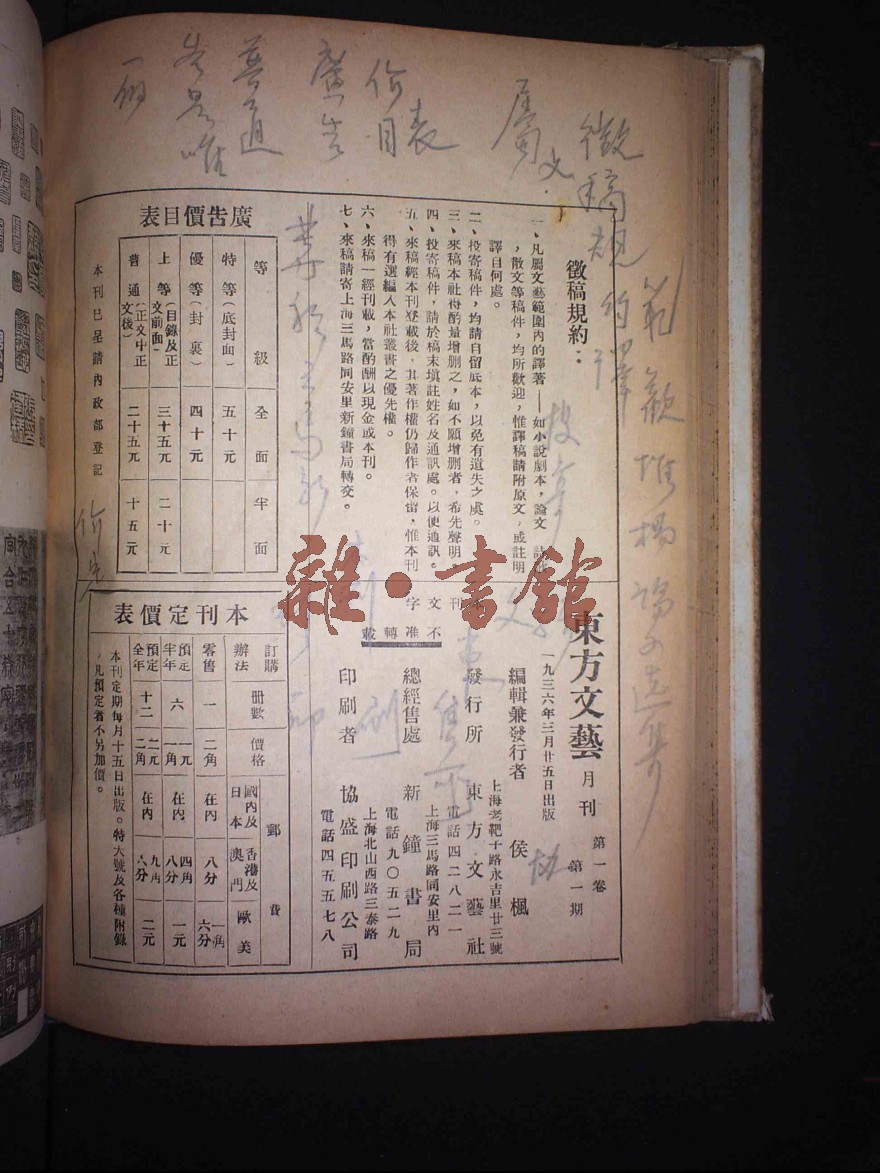 徵稿規約：
一、凡屬文藝範圍內的譯著——如小說劇本，論文
，散文等稿件，均所歡迎，惟譯稿請附原文，或註明
譯自何處。
二、投寄稿件，均請自留底本，以免有遺失之處。
三、來稿本社得酌量增删之，如不願增删者，希先聲明。
四、投寄稿件，請於稿末填註姓名及通訊處。以便通訊。
五、來稿經本刊登載後，其著作權仍歸作者保留，惟本刊
得有選編入本社叢書之優先權。
六、來稿一經刊載，當酌酬以現金或本刊。
七、來稿請寄上海三馬路同安里新鐘書局轉交。
廣告價目表
等級 全面 半面
特等（底封面） 五十元
優等（封裏） 四十元
上等（目錄及正文前面） 三十五元 二十元
普通（正文中正文後） 二十五元 十五元
本刊已呈請內政部登記
東方文藝 月刊 第一卷 第一期
一九三六年三月廿五日出版
編輯兼發行者 侯楓
上海老靶子路永吉里廿三號
發行所 東方文藝社
電話四二八二一
上海三馬路同安里內
總經售處 新鐘書局
電話九〇五二九
上海北山西路三泰路
印刷者 協盛印刷公司
電話四五五七八
本刊文字不准轉載
本刊定價表
訂購辦法 冊數 價格 郵費
國內及日本 香港及澳門 歐美
零售 一 二角 在內 八分 一角六分
預定半年 六 一元一角 在內 四角八分 一元
預定全年 十二 二元二角 在內 九角六分 二元
本刊定期每月十五日出版。特大號及各種附錄
，凡預定者不另加價。
徵稿規約譯
屬文
價目表
廣告
普通
雜·書館